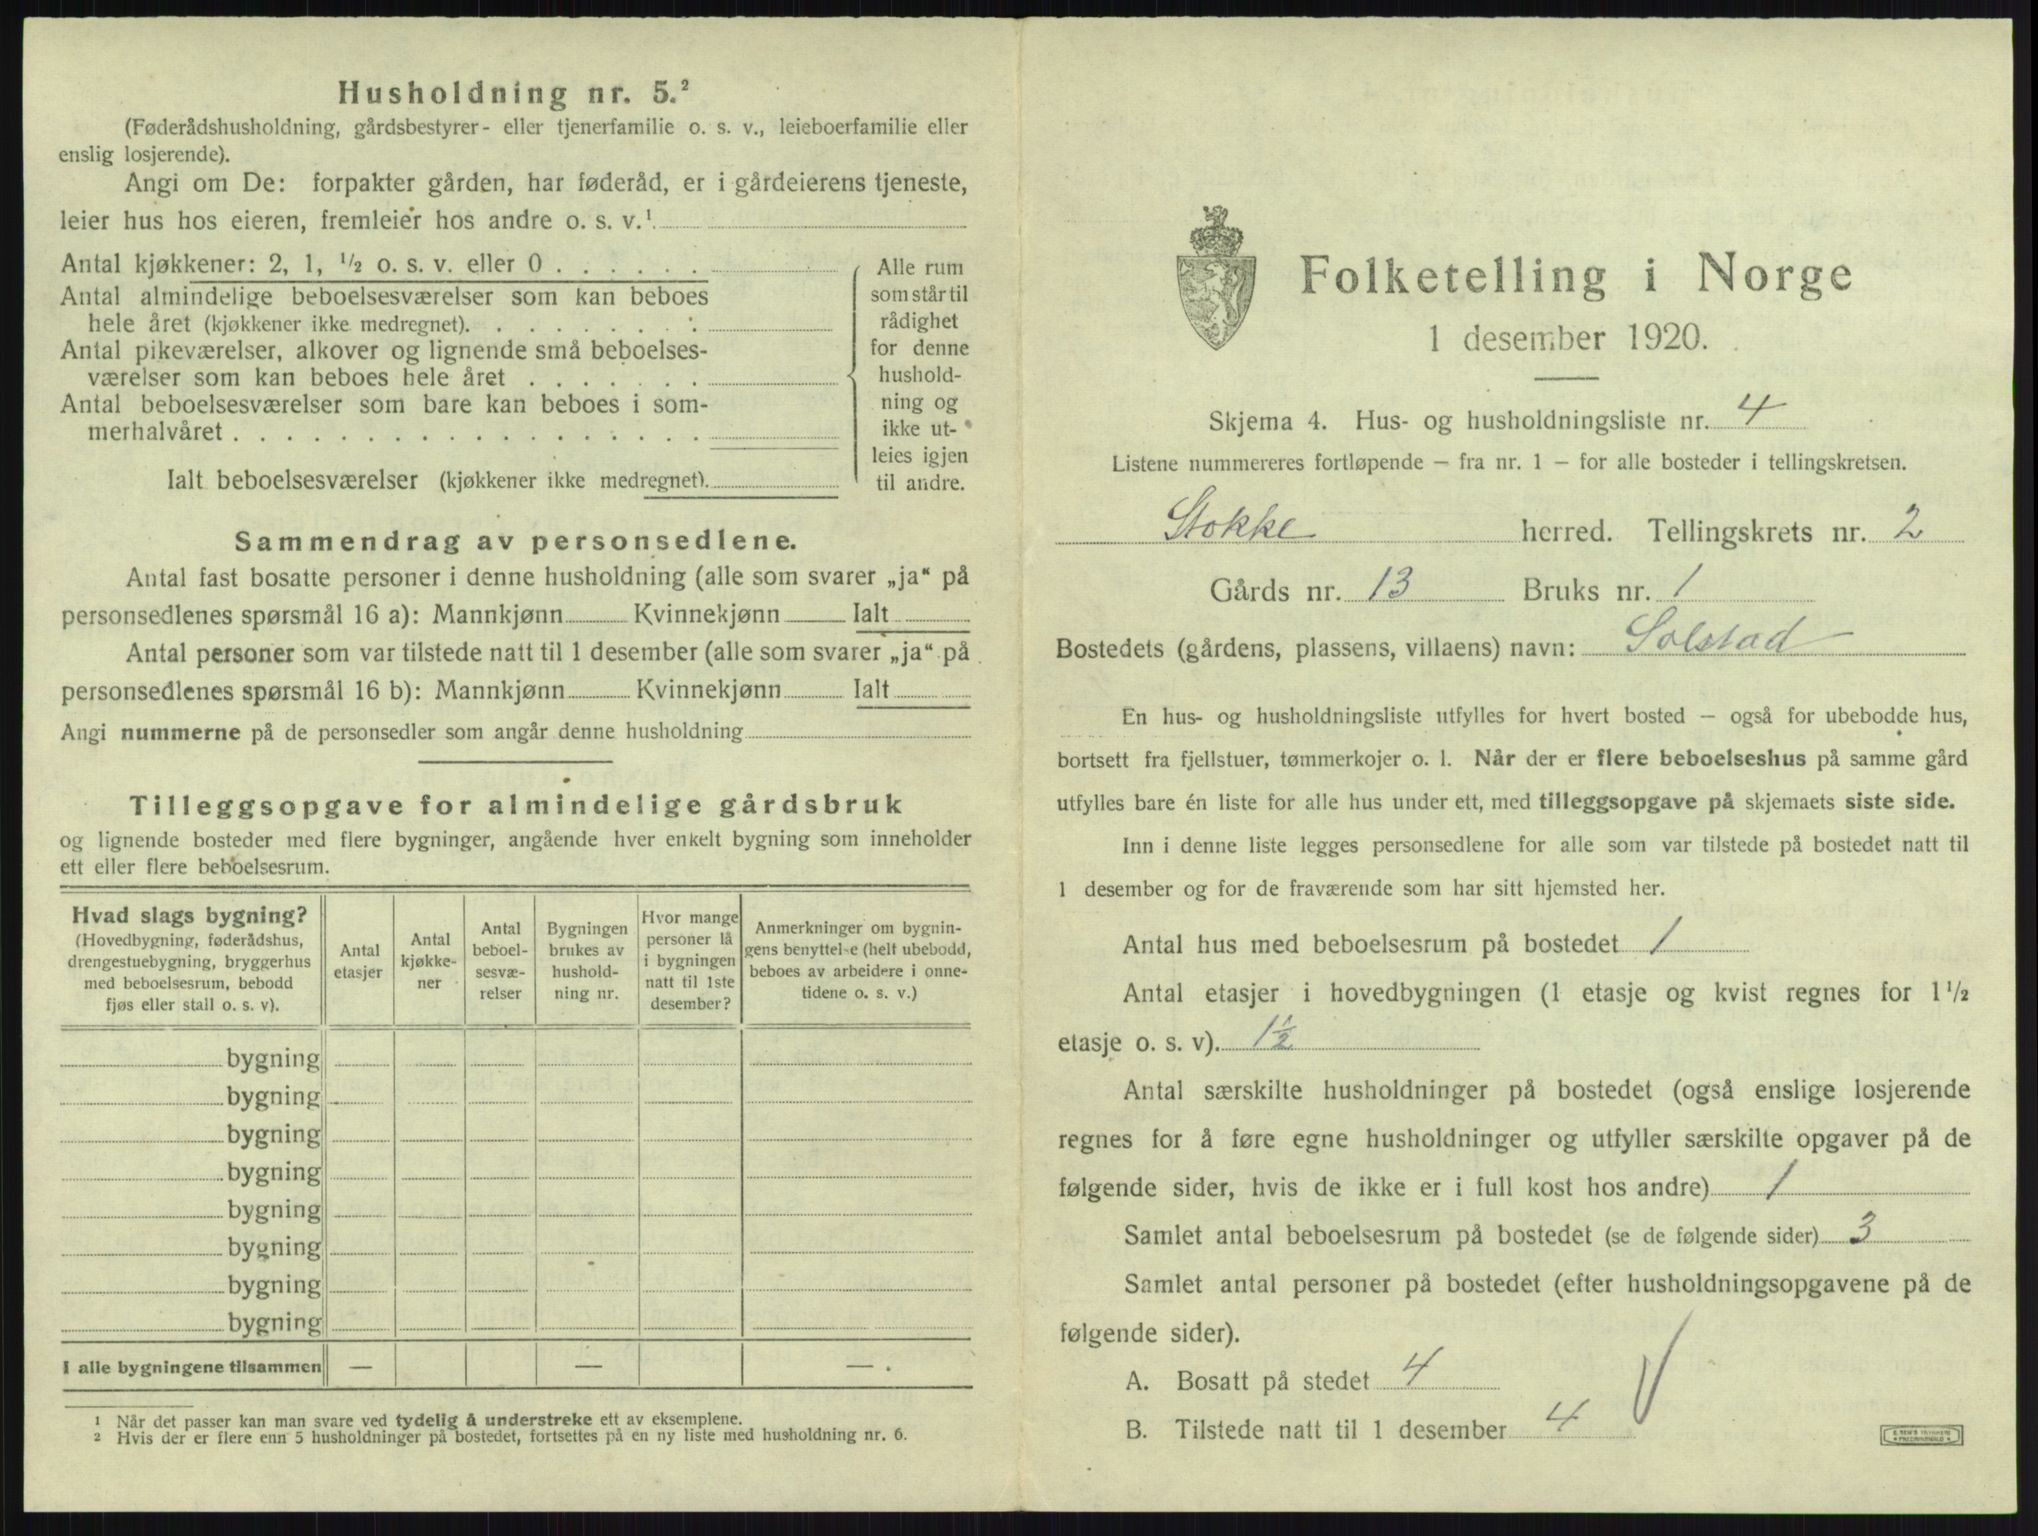 Husholdning nr. 5.²
(Føderådshusholdning, gårdsbestyrer- eller tjenerfamilie o. s. v., leieboerfamilie eller
enslig losjerende).
Angi om De: forpakter gården, har føderåd, er i gårdeierens tjeneste,
leier hus hos eieren, fremleier hos andre o. s. v.¹
Antal kjøkkener: 2, 1, ¹/₂ o. s. v. eller 0 . . . . . .
Antal almindelige beboelsesværelser som kan beboes
hele året (kjøkkener ikke medregnet). . . . . . . . .
Antal pikeværelser, alkover og lignende små beboelses-
værelser som kan beboes hele året . . . . . . .
Antal beboelsesværelser som bare kan beboes i som-
merhalvåret . . . . . . . . . . . . . . . . . .
Ialt beboelsesværelser (kjøkkener ikke medregnet).
Alle rum
som står til
rådighet
for denne
hushold-
ning og
ikke ut-
leies igjen
til andre.
Sammendrag av personsedlene.
Antal fast bosatte personer i denne husholdning (alle som svarer „ja“ på
personsedlenes spørsmål 16 a): Mannkjønn Kvinnekjønn Ialt
Antal personer som var tilstede natt til 1 desember (alle som svarer „ja“ på
personsedlenes spørsmål 16 b): Mannkjønn Kvinnekjønn Ialt
Angi nummerne på de personsedler som angår denne husholdning
Tilleggsopgave for almindelige gårdsbruk
og lignende bosteder med flere bygninger, angående hver enkelt bygning som inneholder
ett eller flere beboelsesrum.
Hvad slags bygning?
(Hovedbygning, føderådshus,
drengestuebygning, bryggerhus
med beboelsesrum, bebodd
fjøs eller stall o. s. v).
Antal
etasjer
Antal
kjøkke-
ner
Antal
beboel-
sesvæ-
relser
Bygningen
brukes av
hushold-
ning nr.
Hvor mange
personer lå
i bygningen
natt til 1ste
desember?
Anmerkninger om bygnin-
gens benyttelse (helt ubebodd,
beboes av arbeidere i onne-
tidene o. s. v.)
bygning
bygning
bygning
bygning
bygning
bygning
bygning
bygning
I alle bygningene tilsammen — — —
¹ Når det passer kan man svare ved tydelig å understreke ett av eksemplene.
² Hvis der er flere enn 5 husholdninger på bostedet, fortsettes på en ny liste med husholdning nr. 6.
Folketelling i Norge
1 desember 1920.
Skjema 4. Hus- og husholdningsliste nr. 4
Listene nummereres fortløpende – fra nr. 1 – for alle bosteder i tellingskretsen.
Stokke herred. Tellingskrets nr. 2
Gårds nr. 13 Bruks nr. 1
Bostedets (gårdens, plassens, villaens) navn: Solstad
En hus- og husholdningsliste utfylles for hvert bosted – også for ubebodde hus,
bortsett fra fjellstuer, tømmerkojer o. l. Når der er flere beboelseshus på samme gård
utfylles bare én liste for alle hus under ett, med tilleggsopgave på skjemaets siste side.
Inn i denne liste legges personsedlene for alle som var tilstede på bostedet natt til
1 desember og for de fraværende som har sitt hjemsted her.
Antal hus med beboelsesrum på bostedet 1
Antal etasjer i hovedbygningen (1 etasje og kvist regnes for 1¹/₂
etasje o. s. v). 1½
Antal særskilte husholdninger på bostedet (også enslige losjerende
regnes for å føre egne husholdninger og utfyller særskilte opgaver på de
følgende sider, hvis de ikke er i full kost hos andre) 1
Samlet antal beboelsesrum på bostedet (se de følgende sider) 3
Samlet antal personer på bostedet (efter husholdningsopgavene på de
følgende sider).
A. Bosatt på stedet 4
B. Tilstede natt til 1 desember 4